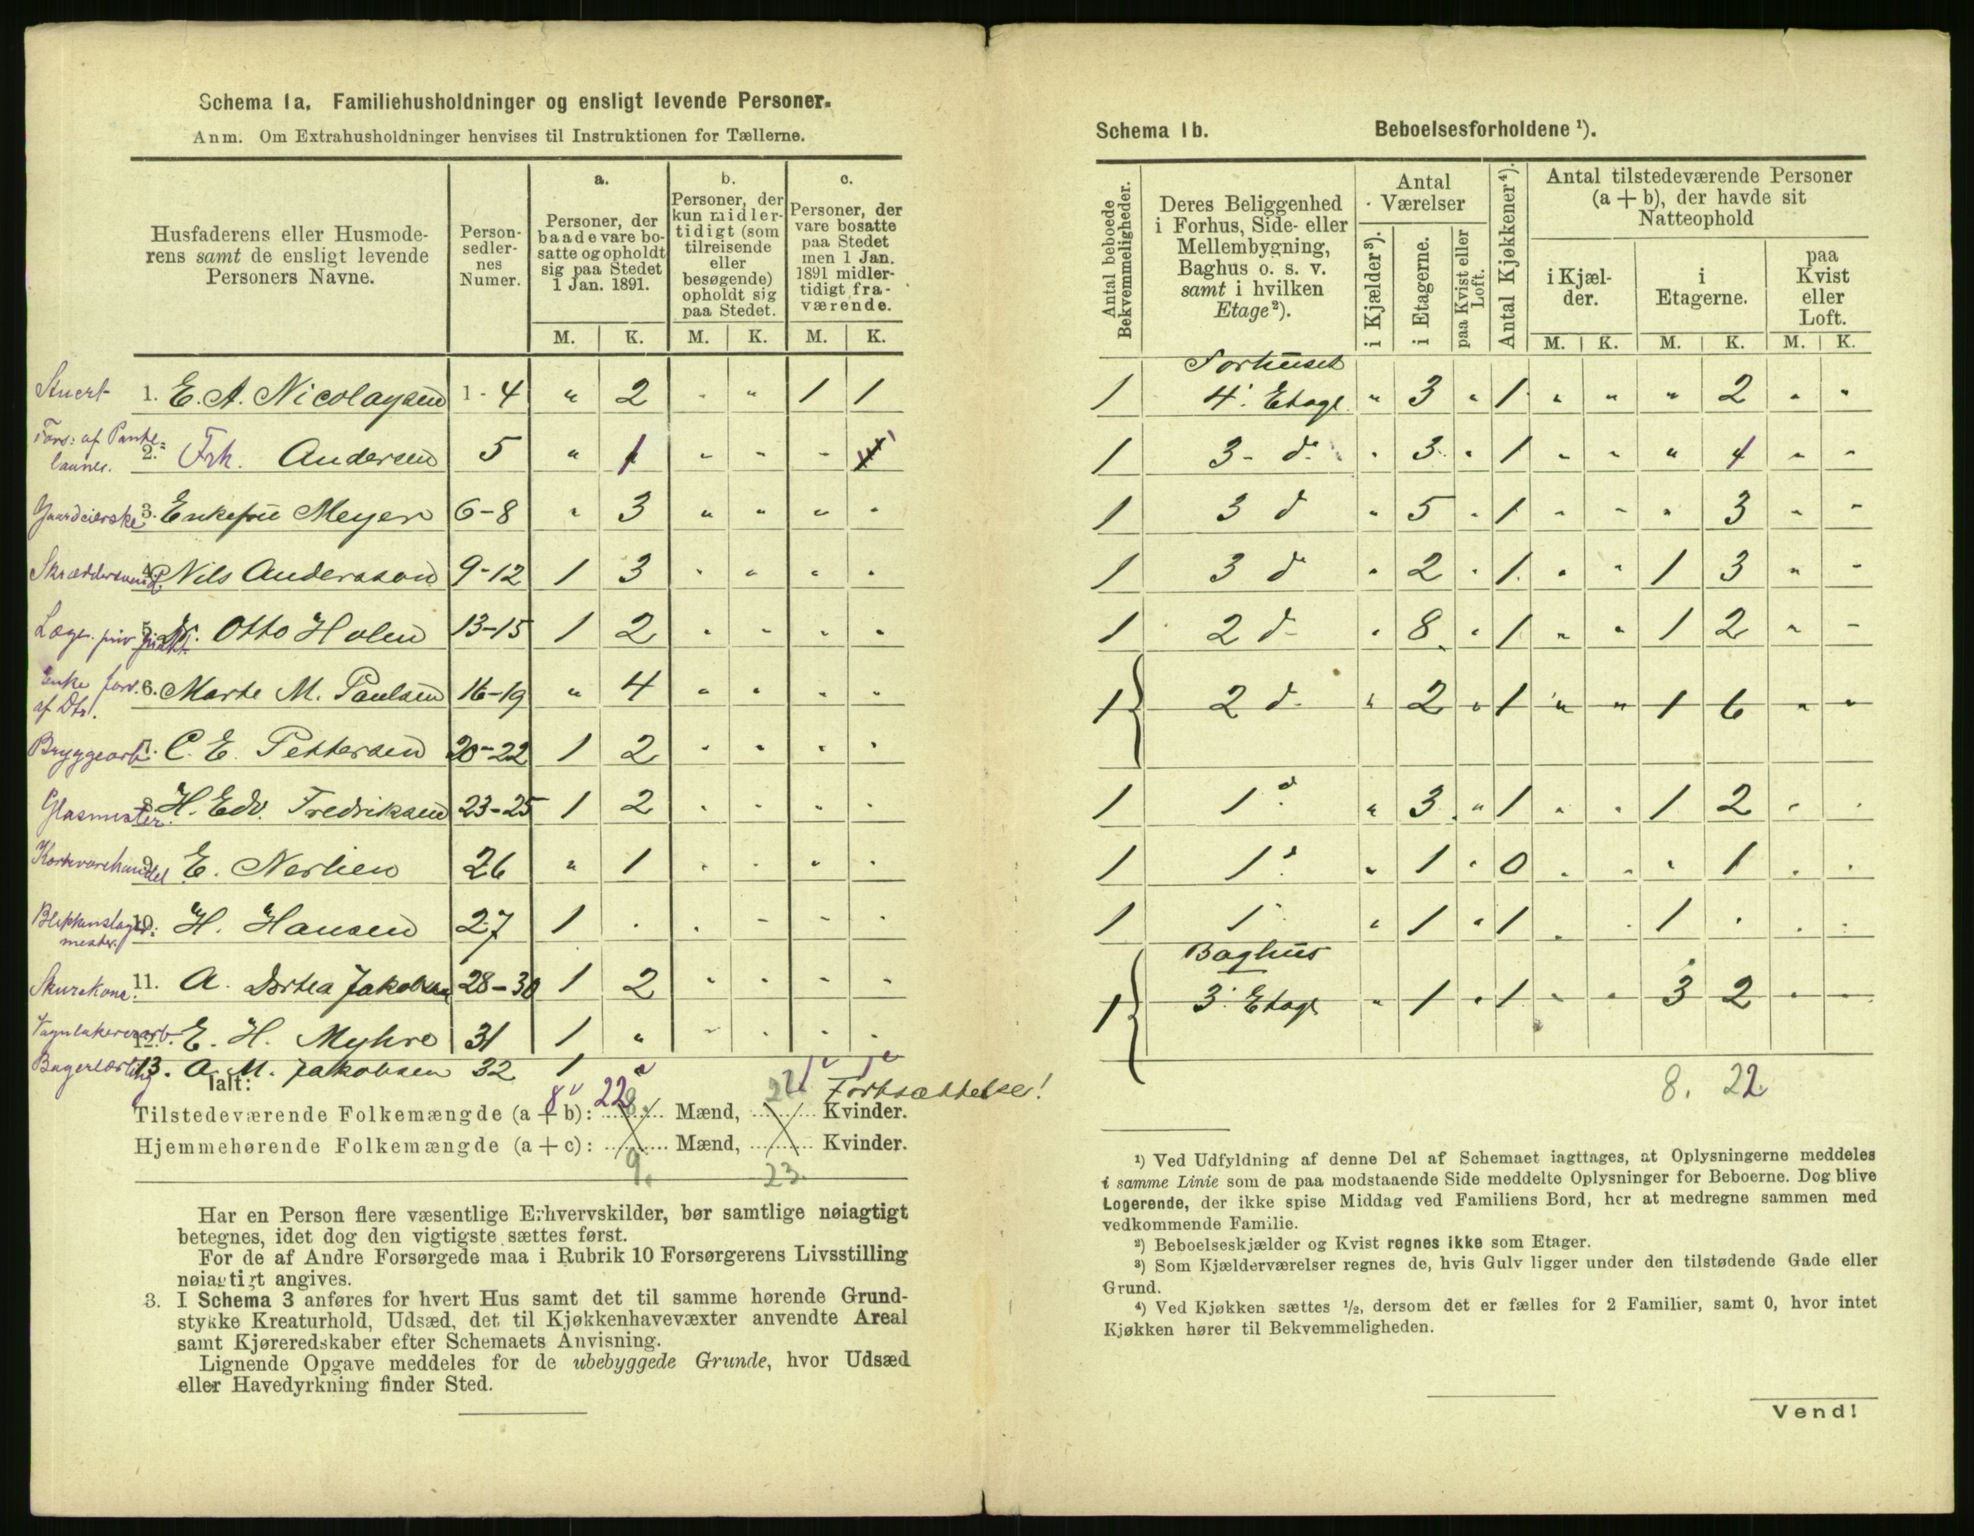 Schema 1a. Familiehusholdninger og ensligt levende Personer.
Anm. Om Extrahusholdninger henvises til Instruktionen for Tællerne.
Husfaderens eller Husmode-
rens samt de ensligt levende
Personers Navne.
Person-
sedler-
nes
Numer.
a.
Personer, der
baade vare bo-
satte og opholdt
sig paa Stedet
1 Jan. 1891.
b.
Personer, der
kun midler-
tidigt (som
tilreisende
eller
besøgende)
opholdt sig
paa Stedet.
c.
Personer, der
vare bosatte
paa Stedet
men 1 Jan.
1891 midler-
tidigt fra-
værende.
M. K. M. K. M. K.
Stuert 1. E. A. Nicolaysen 1-4 " 2 - " 1 1
Fors: af Pante-
laaner. 2. Frk. Andersen 5 " 1 - - -
Gaardeierske 3. Enkefru Meyer 6-8 " 3 " " " "
Skræddersvend 4. Nils Andersson 9-12 1 3 " " " "
Læge. priv prakt. 5. Dr. Otto Holm 13-15 1 2 " " " "
Enke fors.
af Dtr. 6. Marte M. Paulsen 16-19 " 4 " " " "
Bryggearb. 7. C. E. Pettersen 20-22 1 2 " " " "
Glasmester. 8. H. Edv. Fredriksen 23-25 1 2 " " " "
Kortevarehandel 9. E. Nerlien 26 " 1 " " " "
Blikkenslager-
mester. 10. H. Hansen 27 1 . . - - -
Skurekone. 11. A. Dortea Jakobsen 28-30 1 2 " " " "
Vognlakererarb. 12. E. H. Myhre 31 1 " " " " "
Bagerlærling 13. A. M. Jakobsen 32 1 "
Ialt: 1 1
Fortsættelse!
Tilstedeværende Folkemængde (a + b): 8 22 Mænd, 22 Kvinder.
Hjemmehørende Folkemængde (a + c): Mænd, Kvinder.
9. 23.
Har en Person flere væsentlige Erhvervskilder, bør samtlige nøiagtigt
betegnes, idet dog den vigtigste sættes først.
For de af Andre Forsørgede maa i Rubrik 10 Forsørgerens Livsstilling
nøiagtigt angives.
3. I Schema 3 anføres for hvert Hus samt det til samme hørende Grund-
stykke Kreaturhold, Udsæd, det til Kjøkkenhavevæxter anvendte Areal
samt Kjøreredskaber efter Schemaets Anvisning.
Lignende Opgave meddeles for de ubebyggede Grunde, hvor Udsæd
eller Havedyrkning finder Sted.
Schema 1b. Beboelsesforholdene ¹).
Antal beboede
Bekvemmeligheder.
Deres Beliggenhed
i Forhus, Side- eller
Mellembygning,
Baghus o. s. v.
samt i hvilken
Etage²).
Antal
Værelser
i Kjælder³).
i Etagerne.
paa Kvist eller
Loft.
Antal Kjøkkener⁴).
Antal tilstedeværende Personer
(a + b), der havde sit
Natteophold
i Kjæl-
der.
i
Etagerne.
paa
Kvist
eller
Loft.
M. K. M. K. M. K.
Forhuset
1 4. Etage " 3 " 1 " " " 2 " "
1 3- d- " 3 " 1 " " " 1 " "
1 3 d " 5 " 1 " " " 3 " "
1 3 d " 2 " 1 " " 1 3 " "
1 2 d- " 8 " 1 " " 1 2 " "
1 2 d- " 2 " 1 " " 1 6 " "
1 1. d " 3 " 1 " " 1 2 " "
1 1. d " 1 " 0 " " " 1 " "
1 1. " 1 " 1 . . 1 . . .
Baghus
1 3. Etage " 1 " 1 " " 3 2 " "
8. 22
¹) Ved Udfyldning af denne Del af Schemaet iagttages, at Oplysningerne meddeles
i samme Linie som de paa modstaaende Side meddelte Oplysninger for Beboerne. Dog blive
Logerende, der ikke spise Middag ved Familiens Bord, her at medregne sammen med
vedkommende Familie.
²) Beboelseskjælder og Kvist regnes ikke som Etager.
³) Som Kjælderværelser regnes de, hvis Gulv ligger under den tilstødende Gade eller
Grund.
⁴) Ved Kjøkken sættes ½, dersom det er fælles for 2 Familier, samt 0, hvor intet
Kjøkken hører til Bekvemmeligheden.
Vend!